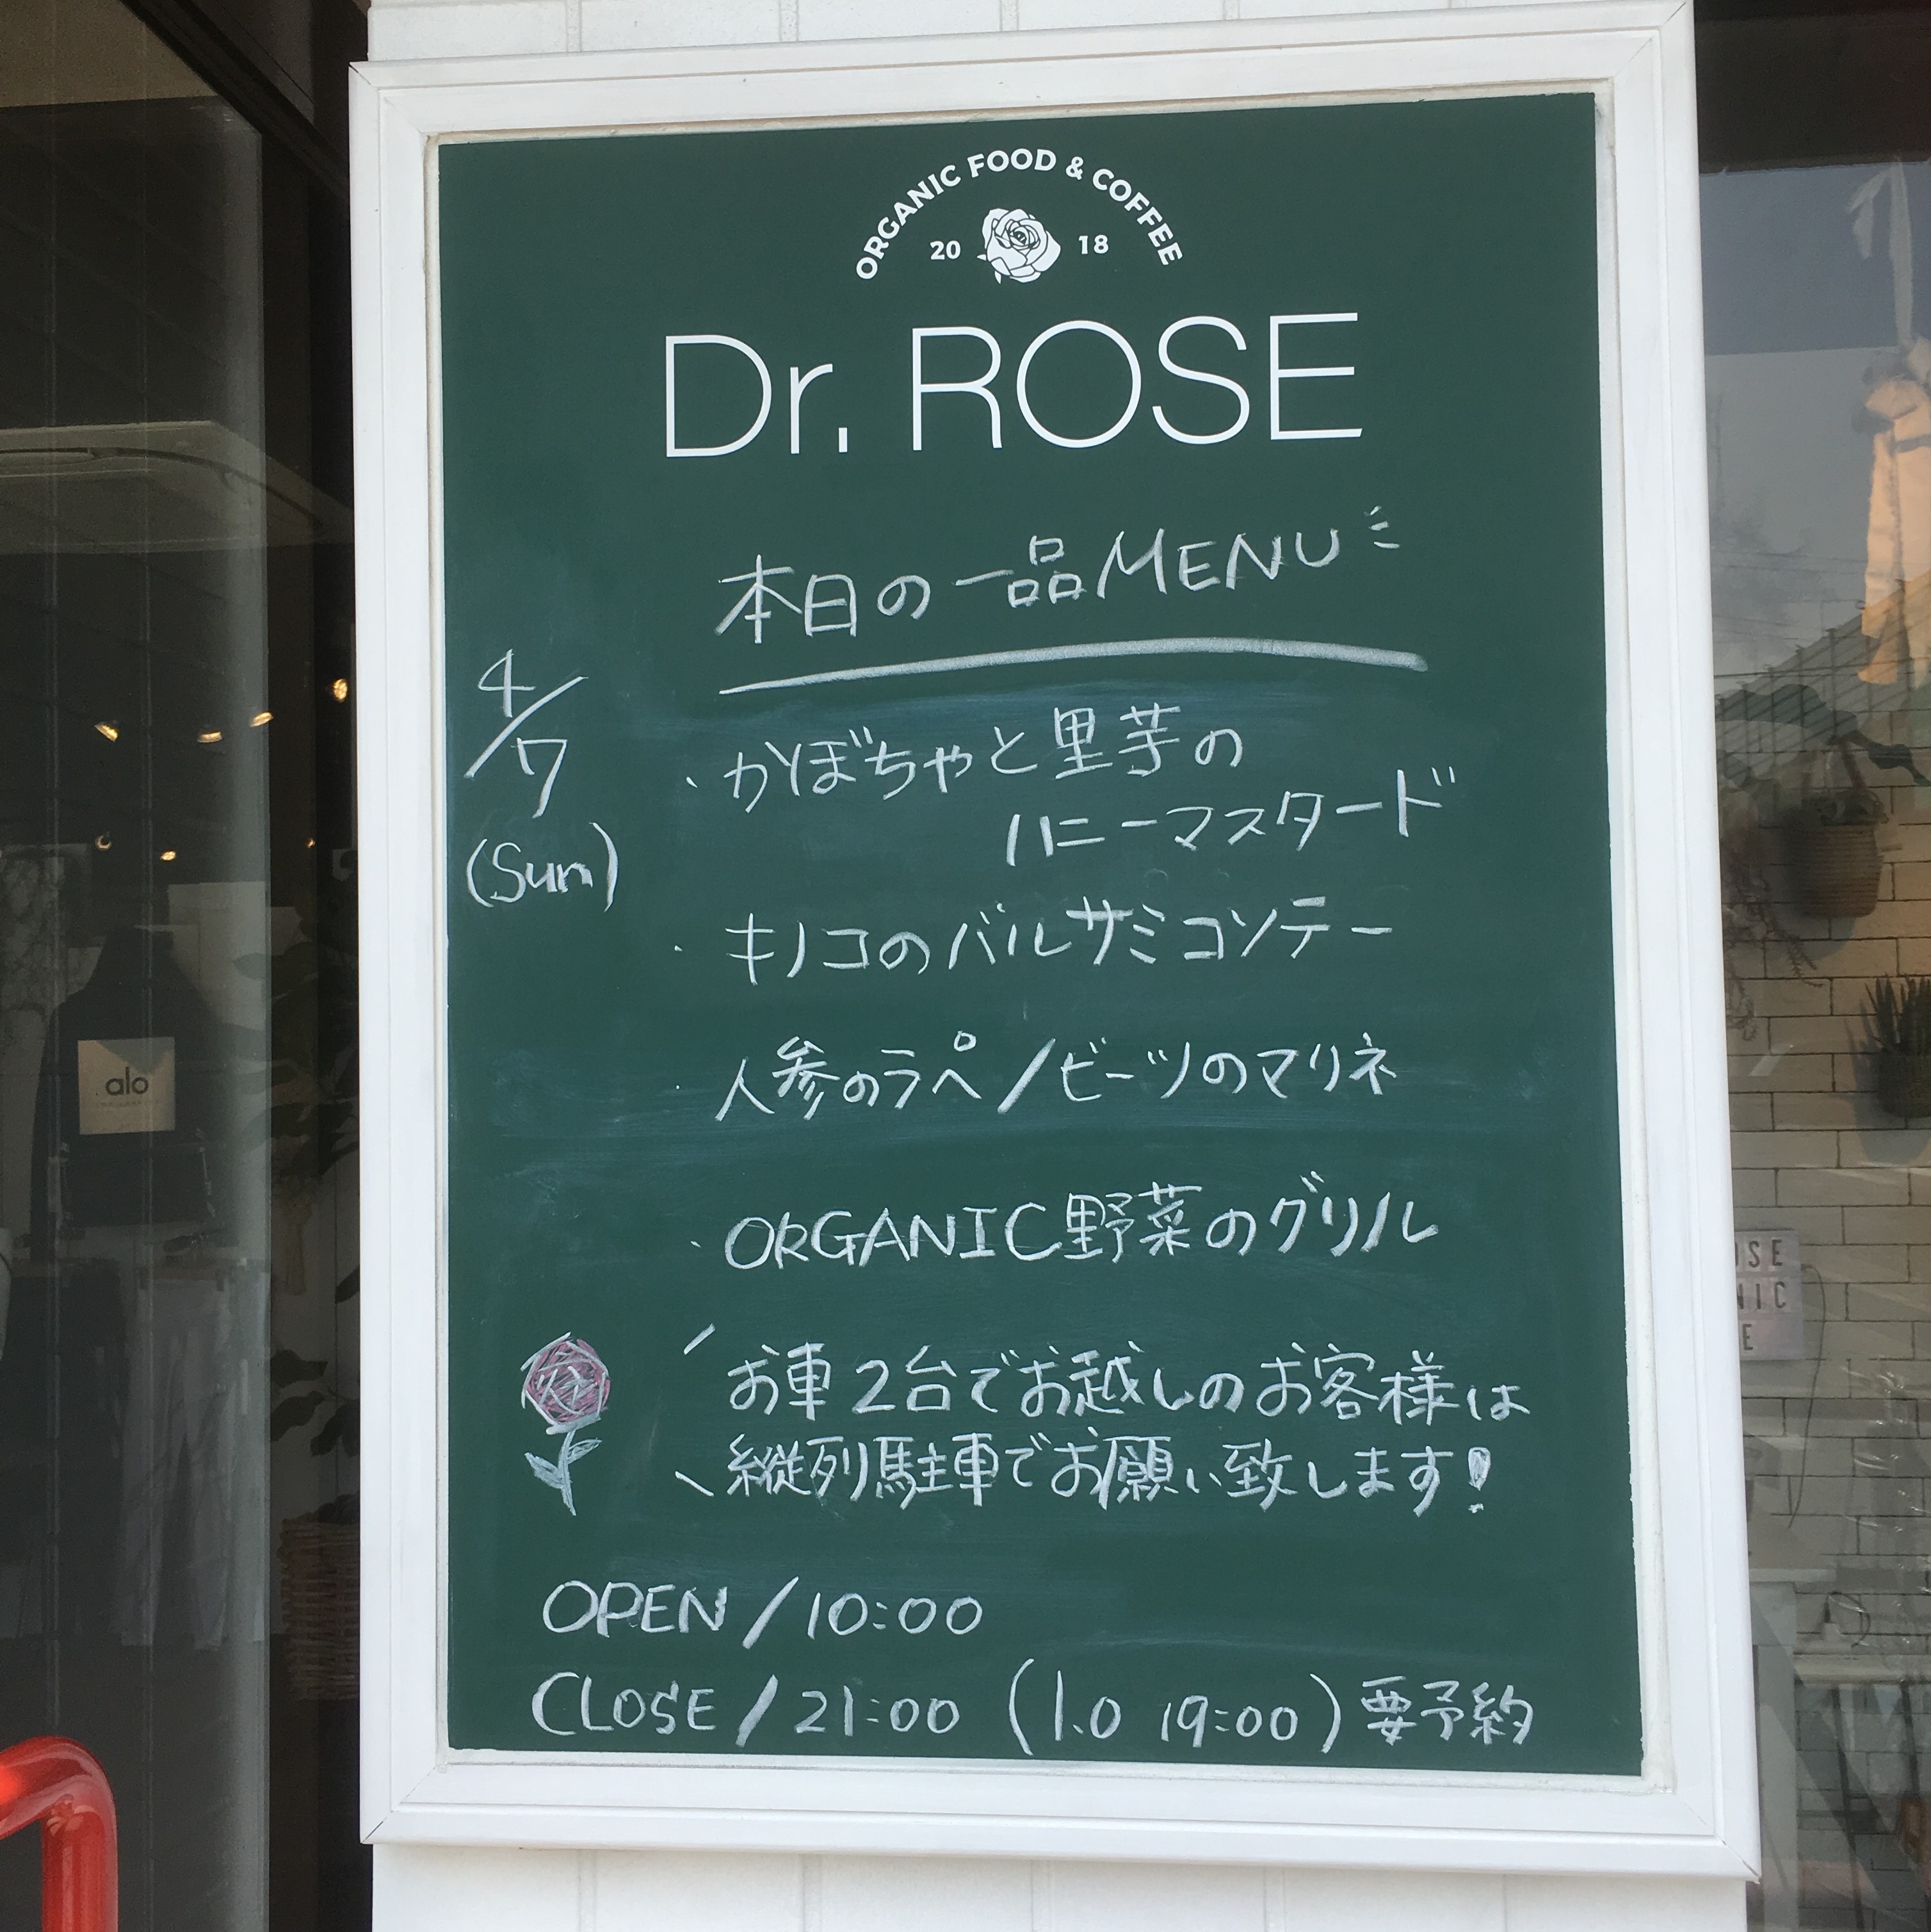 ORGANIC FOOD & COFFEE
20 18
Dr. ROSE
本日の一品MENU
4/7
(Sun)
・かぼちゃと里芋の
ハニーマスタード
・キノコのバルサミコソテー
・人参のラペ/ビーツのマリネ
・ORGANIC野菜のグリル
お車2台でお越しのお客様は
縦列駐車でお願い致します!
OPEN/10:00
CLOSE/21:00 (l.o 19:00)要予約
alo